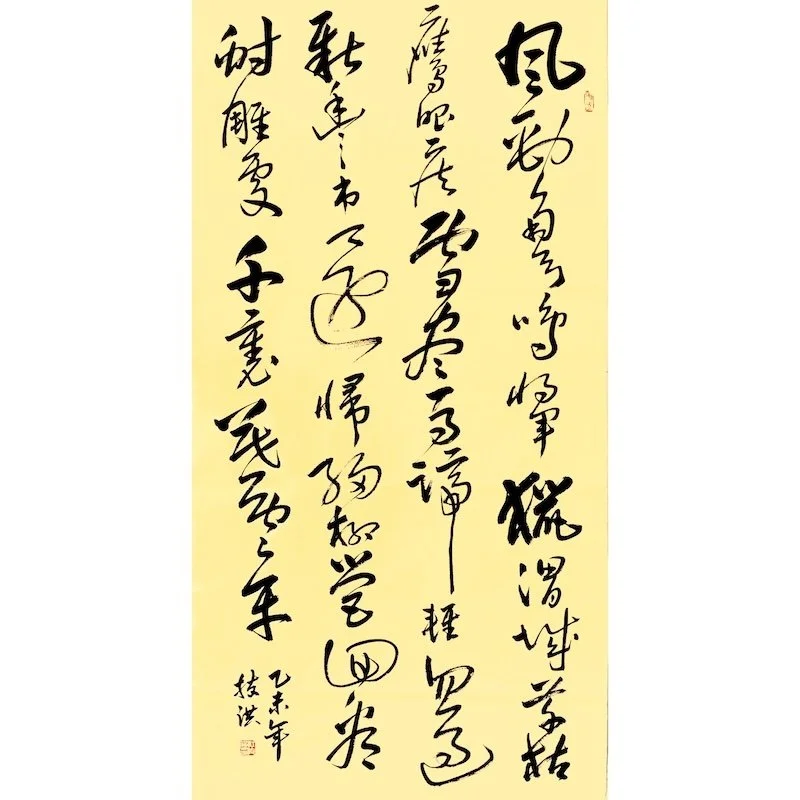 風勁角弓鳴將軍獵渭城草枯
鷹眼疾雪盡馬蹄輕忽過
新豐市還歸細柳營回看
射雕處千里暮雲平
乙未年
洪